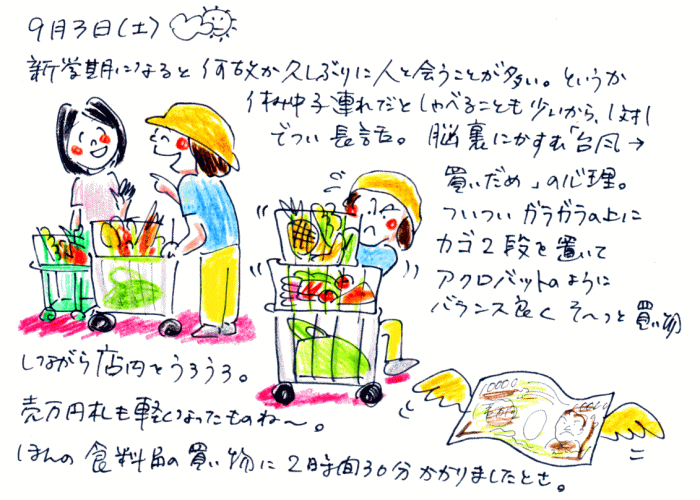 9月3日(土)
新学期になると何故か久しぶりに人と会うことが多い。というか
休み中子連れだとしゃべることも少いから、1対1
でつい長話。脳裏にかすむ「台風→
買いだめ」の心理。
ついついガラガラの上に
カゴ2段を置いて
アクロバットのように
バランス良くそ〜っと買い物
しながら店内をうろうろ。
壱万円札も軽くなったものね〜。
ほんの食料品の買い物に2時間30分かかりましたとさ。
10000
10000